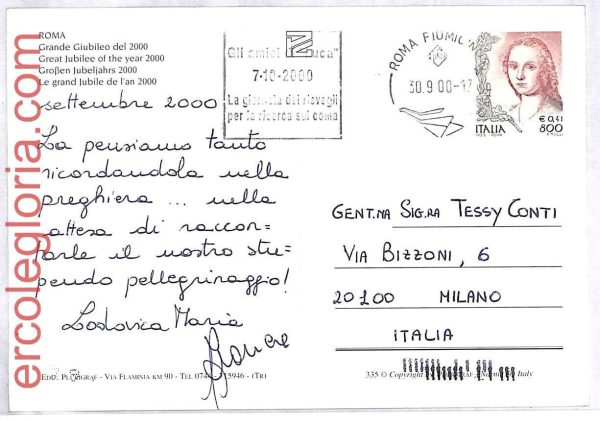 ROMA
Grande Giubileo del 2000
Great Jubilee of the year 2000
Großen Jubeljahrs 2000
Le grand Jubile de l'an 2000
Gli amici di
7-10-2000
La giornata dei risvegli
per la ricerca sul coma
ROMA FIUMIC
30.9 00-17
ITALIA
€ 0,41
800
settembre 2000
La pensiamo tanto
ricordandola nella
preghiera ... nella
attesa di raccon-
tarle il nostro stu=
pendo pellegrinaggio!
Lodovica Maria
GENT.NA SIG.RA TESSY CONTI
VIA BIZZONI, 6
20100 MILANO
ITALIA
EDIZ. VIA FLAMINIA KM 90 - TEL 074 15946 - (TR)
335 © Copyright Italy
ercolegloria.com